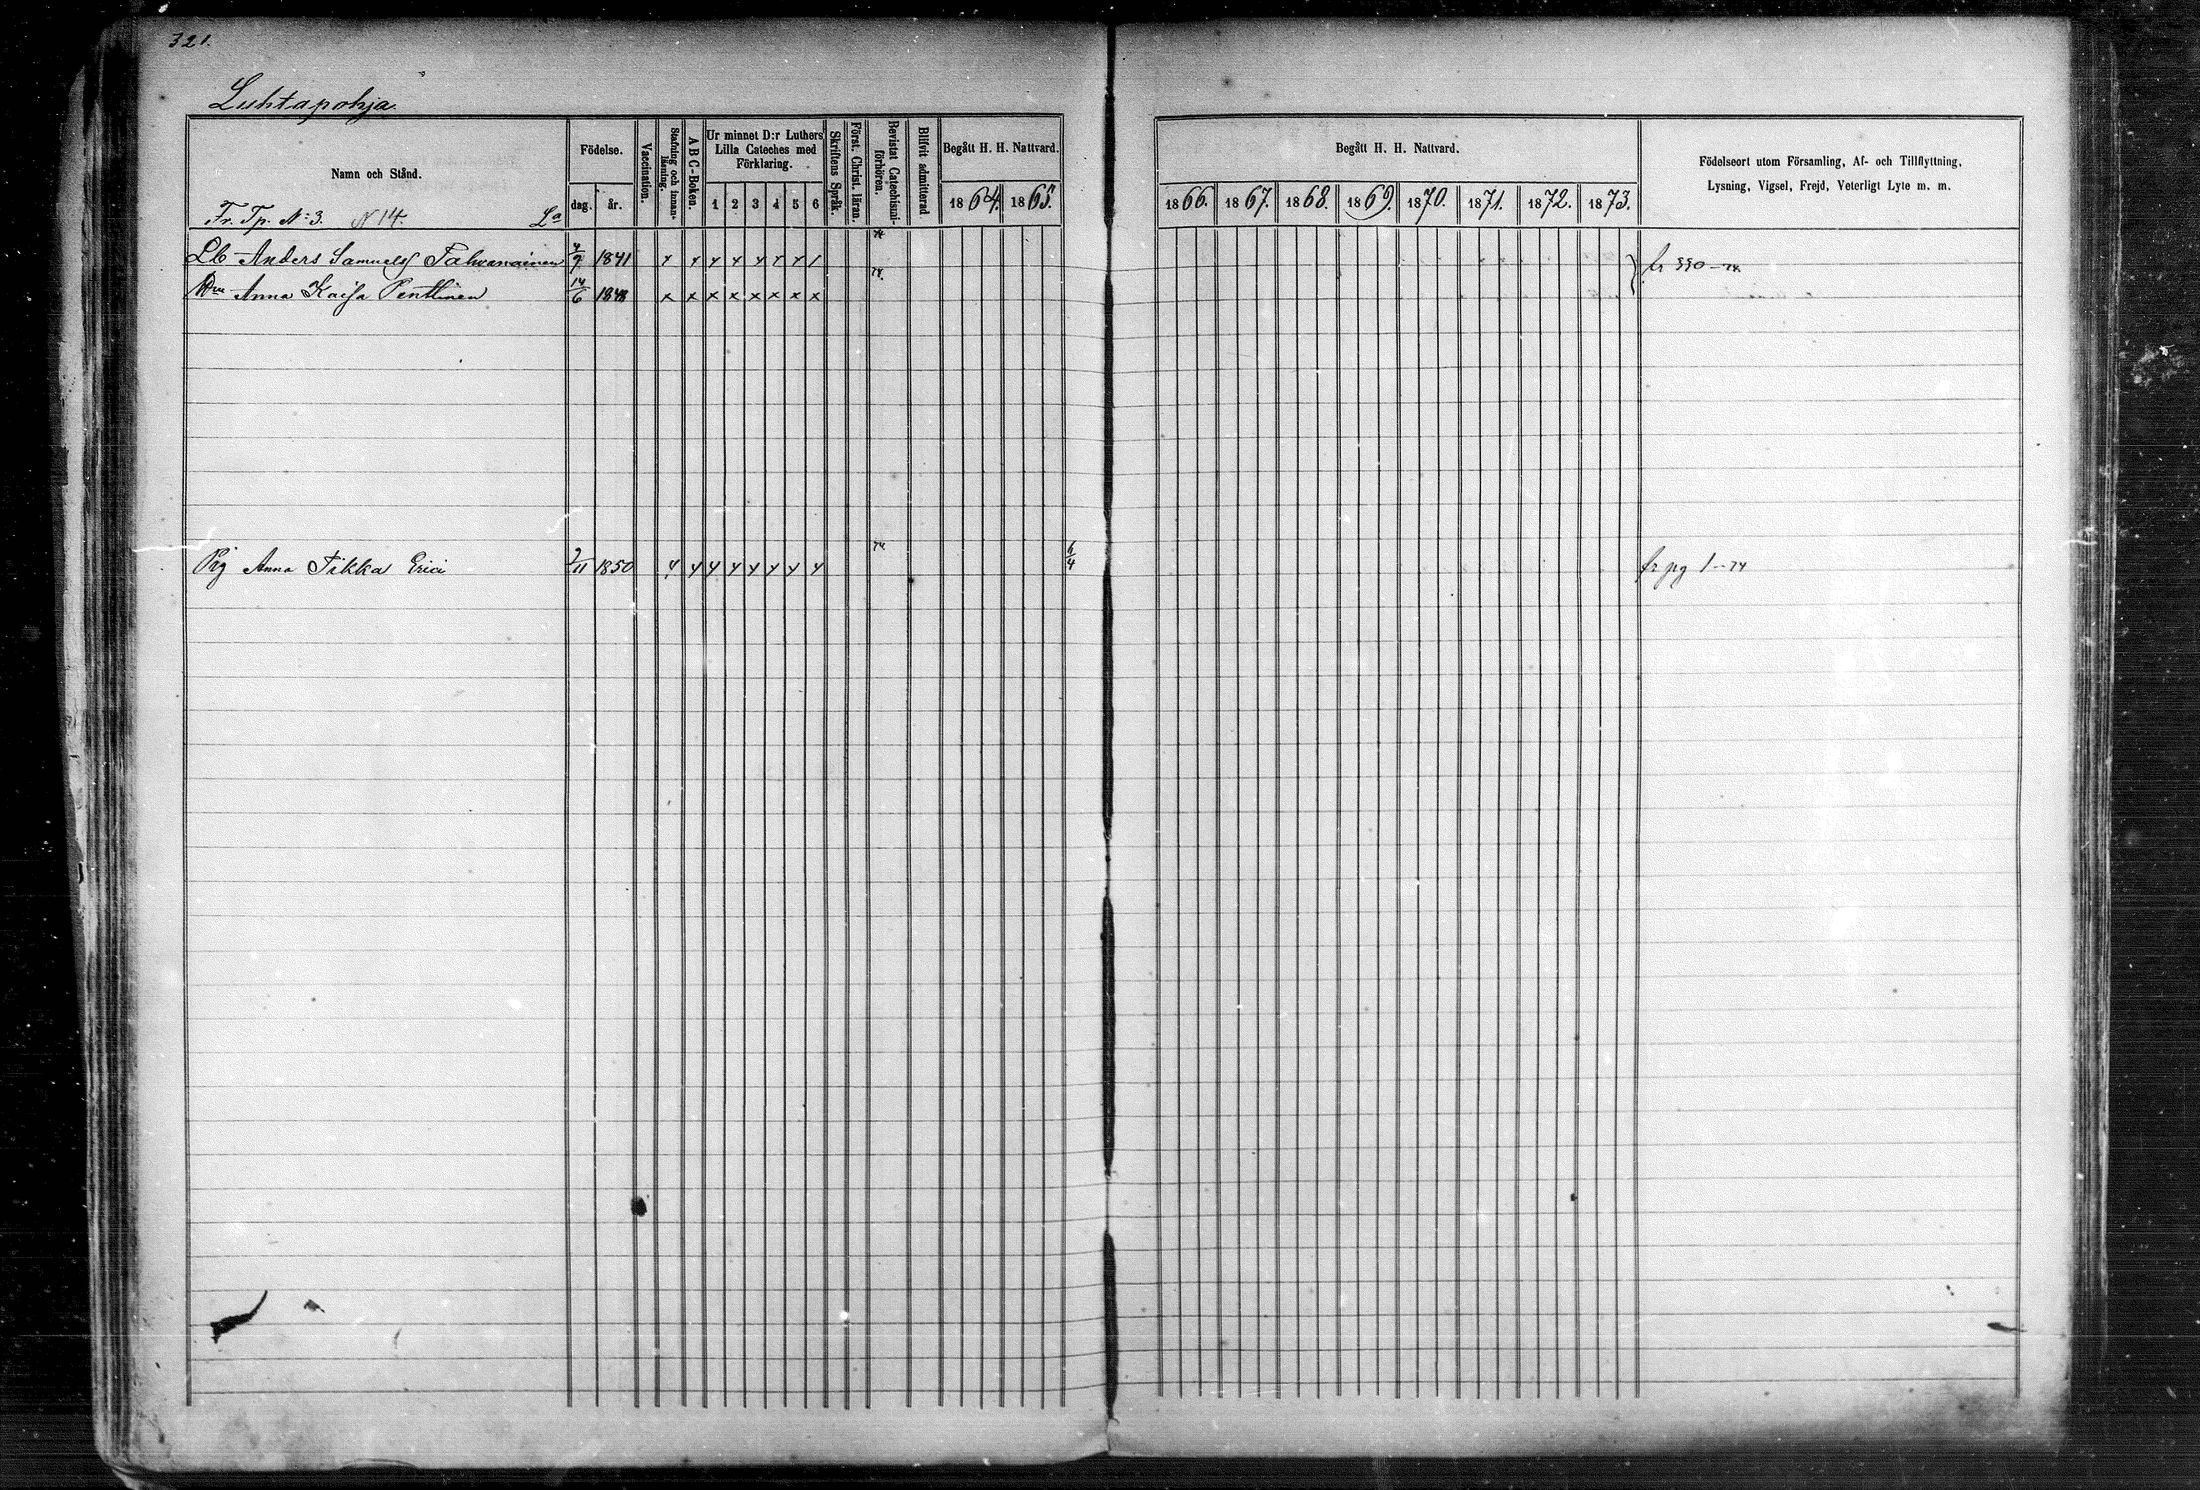 321.
Luhtapohja
Namn och Stånd.
Födelse.
dag. år.
Vaccination.
Stafning och innan-läsning.
A B C-Boken.
Ur minnet D:r Luthers Lilla Cateches med Förklaring.
1 2 3 4 5 6
Skriftens Språk.
Först. Christ. läran.
Bevistat Catechismi-förhören.
Blifvit admitterad
Begått H. H. Nattvard.
1864. 1865.
Begått H. H. Nattvard.
1866. 1867. 1868. 1869. 1870. 1871. 1872. 1873.
Födelseort utom Församling, Af- och Tillflyttning,
Lysning, Vigsel, Frejd, Veterligt Lyte m. m.
Fr. Tp. N:3. N 14. La
Lb Anders Samuels 1841 x x x x x x x
Anna Kaisa Penttinen 14/6 x x x x x x x x
74
Pig Anna Tikka Erici 9/11 1850 6/4 fr pg 1-74